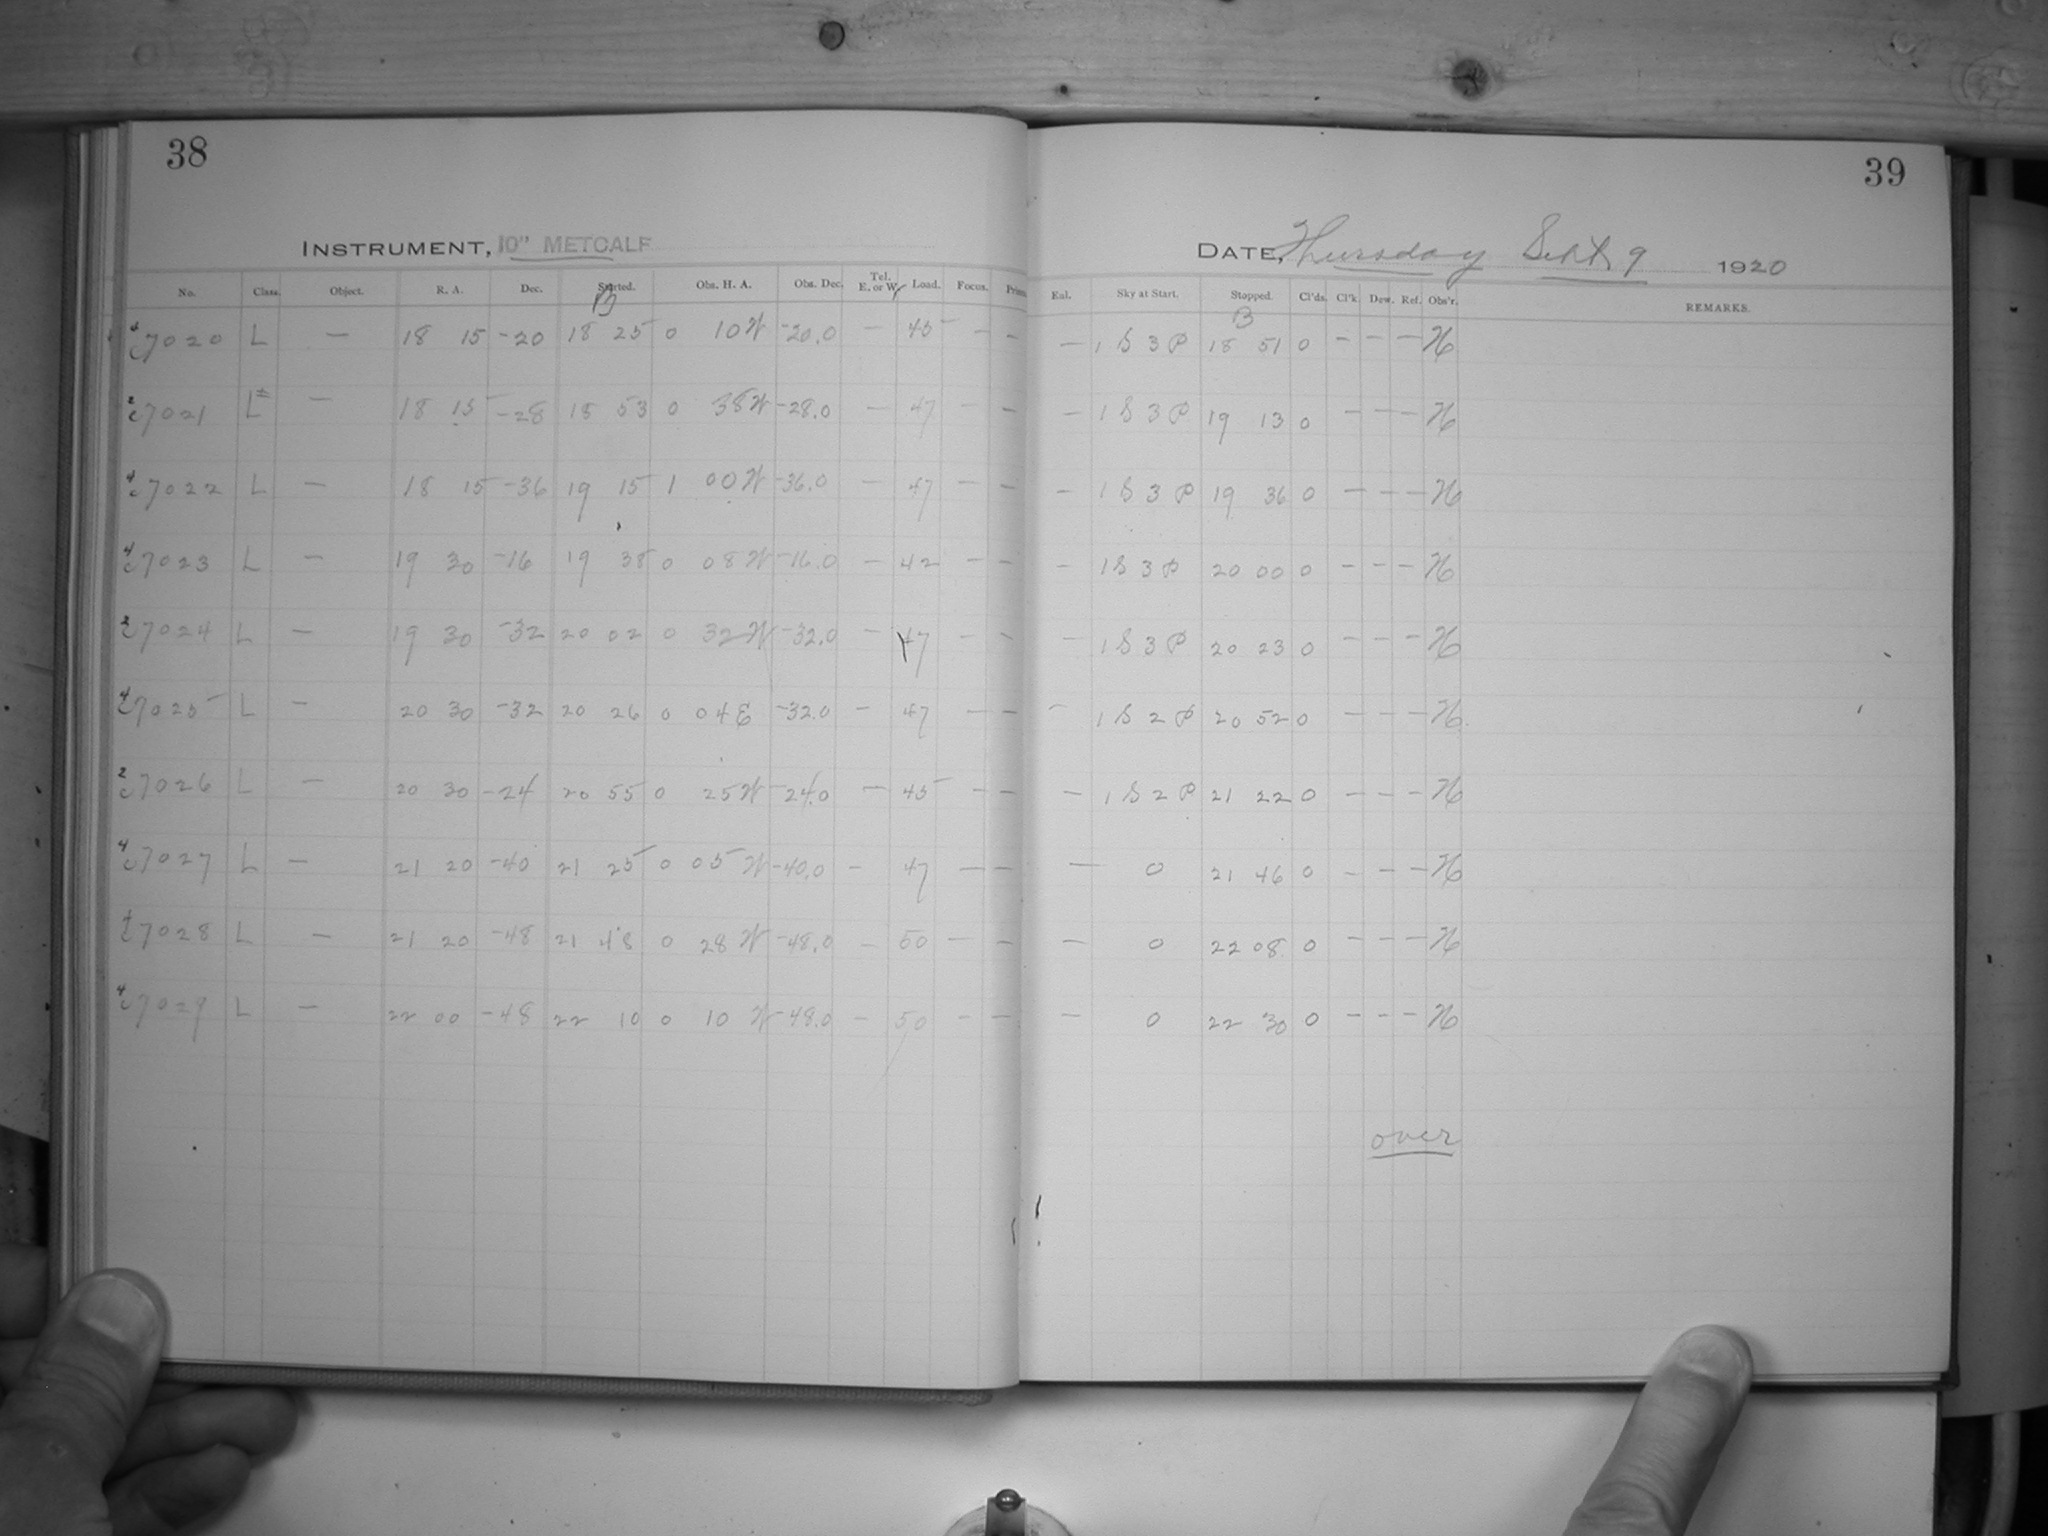 38 39
INSTRUMENT, 10" METCALF DATE, Thursday Sept 9 1920
No. Class. Object. R. A. Dec. Started. Obs. H. A. Obs. Dec. Tel. E. or W. Load. Focus. Exl. Sky at Start. Stopped. Cl'ds. Cl'k. Dew. Ref. Obs'r. REMARKS.
B B
c7020 L — 18 15 -20 18 25 0 10 W -20.0 — 45 — — — 1 S 3 P 18 51 0 — — — H
c7021 L — 18 15 -28 18 53 0 38 W -28.0 — 47 — — — 1 S 3 P 19 13 0 — — — H
c7022 L — 18 15 -36 19 15 1 00 W -36.0 — 47 — — — 1 S 3 P 19 36 0 — — — H
c7023 L — 19 30 -16 19 38 0 08 W -16.0 — 42 — — — 1 S 3 P 20 00 0 — — — H
c7024 L — 19 30 -32 20 02 0 32 W -32.0 — 47 — — — 1 S 3 P 20 23 0 — — — H
c7025 L — 20 30 -32 20 26 0 04 E -32.0 — 47 — — — 1 S 2 P 20 52 0 — — — H
c7026 L — 20 30 -24 20 55 0 25 W -24.0 — 45 — — — 1 S 2 P 21 22 0 — — — H
c7027 L — 21 20 -40 21 25 0 05 W -40.0 — 47 — — — 0 21 46 0 — — — H
c7028 L — 21 20 -48 21 48 0 28 W -48.0 — 50 — — — 0 22 08 0 — — — H
c7029 L — 22 00 -48 22 10 0 10 W -48.0 — 50 — — — 0 22 30 0 — — — H
over